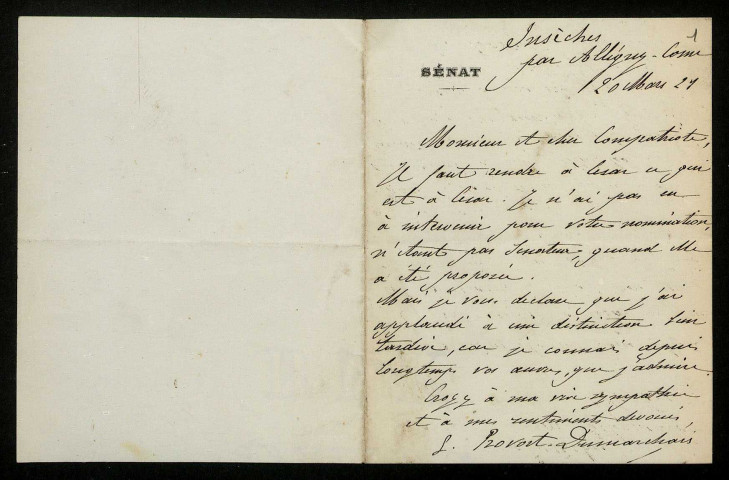 1
Insèches
par Alligny-Cosne
20 Mars 27
SÉNAT
Monsieur et cher Compatriote,
Il faut rendre à César ce qui
est à César. Je n'ai pas eu
à intervenir pour votre nomination,
n'étant pas Sénateur, quand elle
a été proposée.
Mais je vous déclare que j'ai
applaudi à une distinction bien
tardive, car je connais depuis
longtemps vos œuvres, que j'admire.
Croyez à ma vive sympathie
et à mes sentiments dévoués,
Provost-Dumarchais